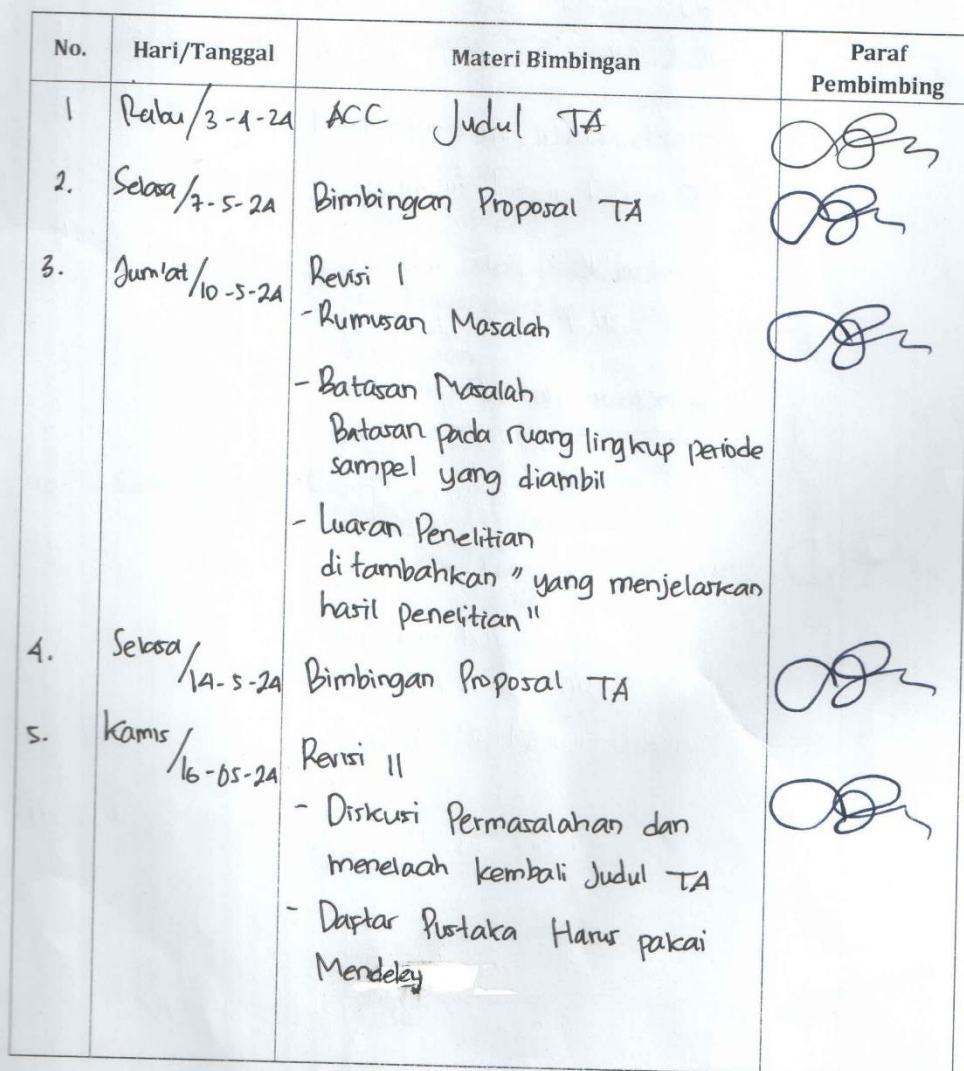 No. Hari/Tanggal Materi Bimbingan Paraf Pembimbing
1 Rabu/3-4-24 ACC Judul TA
2. Selasa/7-5-24 Bimbingan Proposal TA
3. Jum'at/10-5-24 Revisi I
- Rumusan Masalah
- Batasan Masalah
Batasan pada ruang lingkup periode
sampel yang diambil
- Luaran Penelitian
di tambahkan "yang menjelaskan
hasil penelitian"
4. Selasa/14-5-24 Bimbingan Proposal TA
5. Kamis/16-05-24 Revisi II
- Diskusi Permasalahan dan
menelaah kembali Judul TA
- Daptar Pustaka Harus pakai
Mendeley